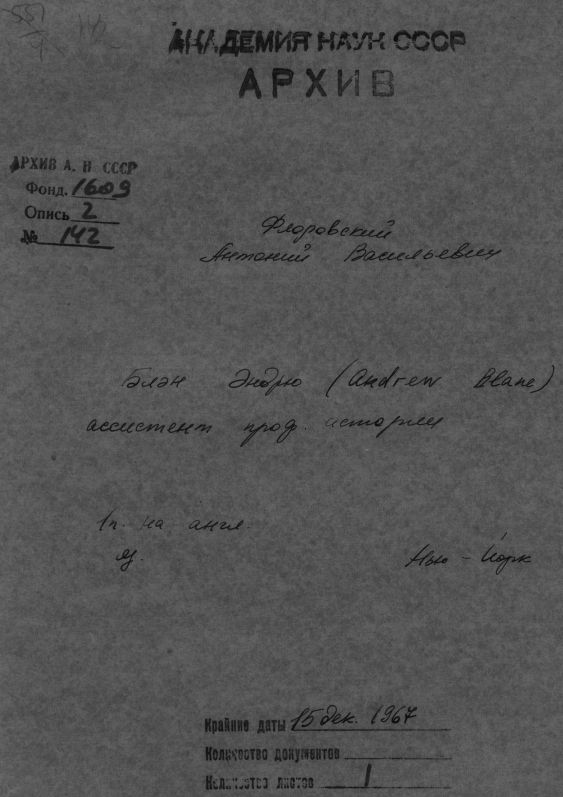 551
9
АКАДЕМИЯ НАУК СССР
АРХИВ
АРХИВ А. Н. СССР
Фонд. 1609
Опись 2
№ 142
Флоровский
Антоний Васильевич
Блэн Эндрю (Andrew Blane)
ассистент проф. истории
1п. на англ.
яз.
Нью-Йорк
Крайние даты 15 дек. 1967
Количество документов
Количество листов 1